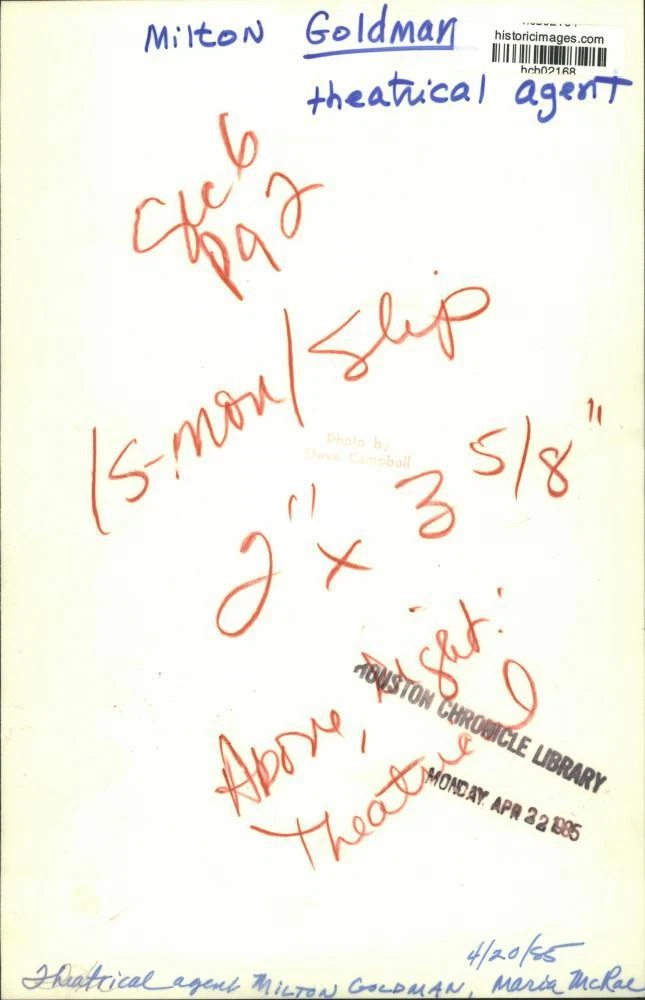 Milton Goldman
historicimages.com
hcb02168
theatrical agent
pg 2
15-mon/Slip
Photo by
Steve Campbell
2" x 3 5/8"
Above, Right:
Theatrical
HOUSTON CHRONICLE LIBRARY
MONDAY APR 22 1985
4/20/85
Theatrical agent MILTON GOLDMAN, Maria McRae